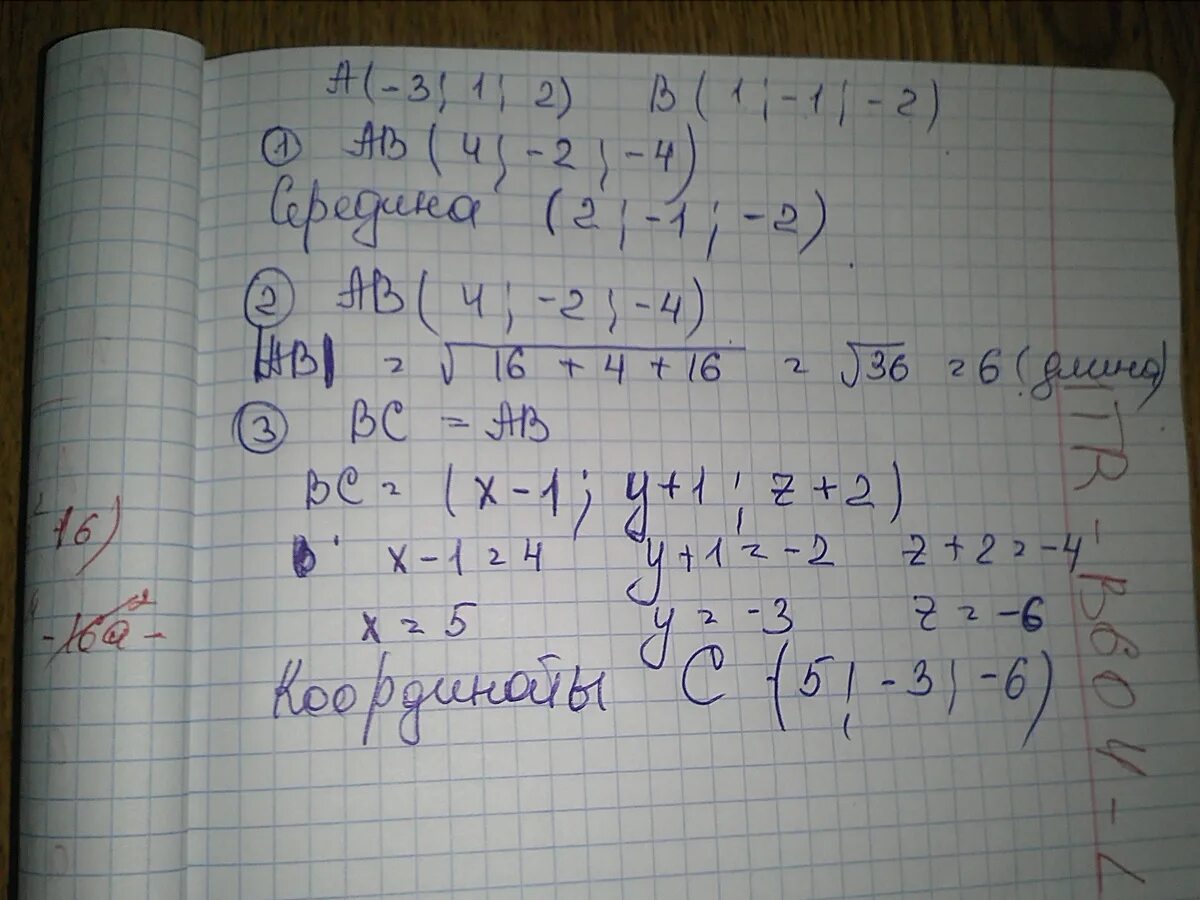 A(-3; 1; 2) B(1; -1; -2)
① AB(4; -2; -4)
Середина (2; -1; -2)
② AB(4; -2; -4)
|AB| = √16 + 4 + 16 = √36 = 6 (длина)
③ BC = AB
BC = (x-1; y+1; z+2)
x-1=4 y+1=-2 z+2=-4
x=5 y=-3 z=-6
Координаты C (5; -3; -6)
16)
-16a²-